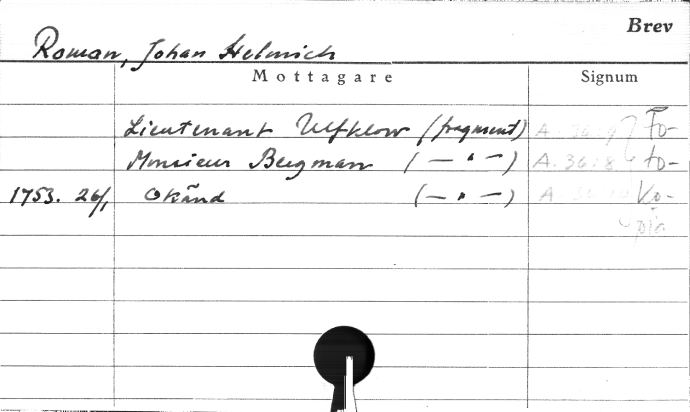 Brev
Roman, Johan Helmich
Mottagare Signum
Lieutenant Ulfklow (fragment) Fo-
Monsieur Bergman (— " —) A. 36:8 to-
1753. 26/1 Okänd (— " —) Ko-
pia